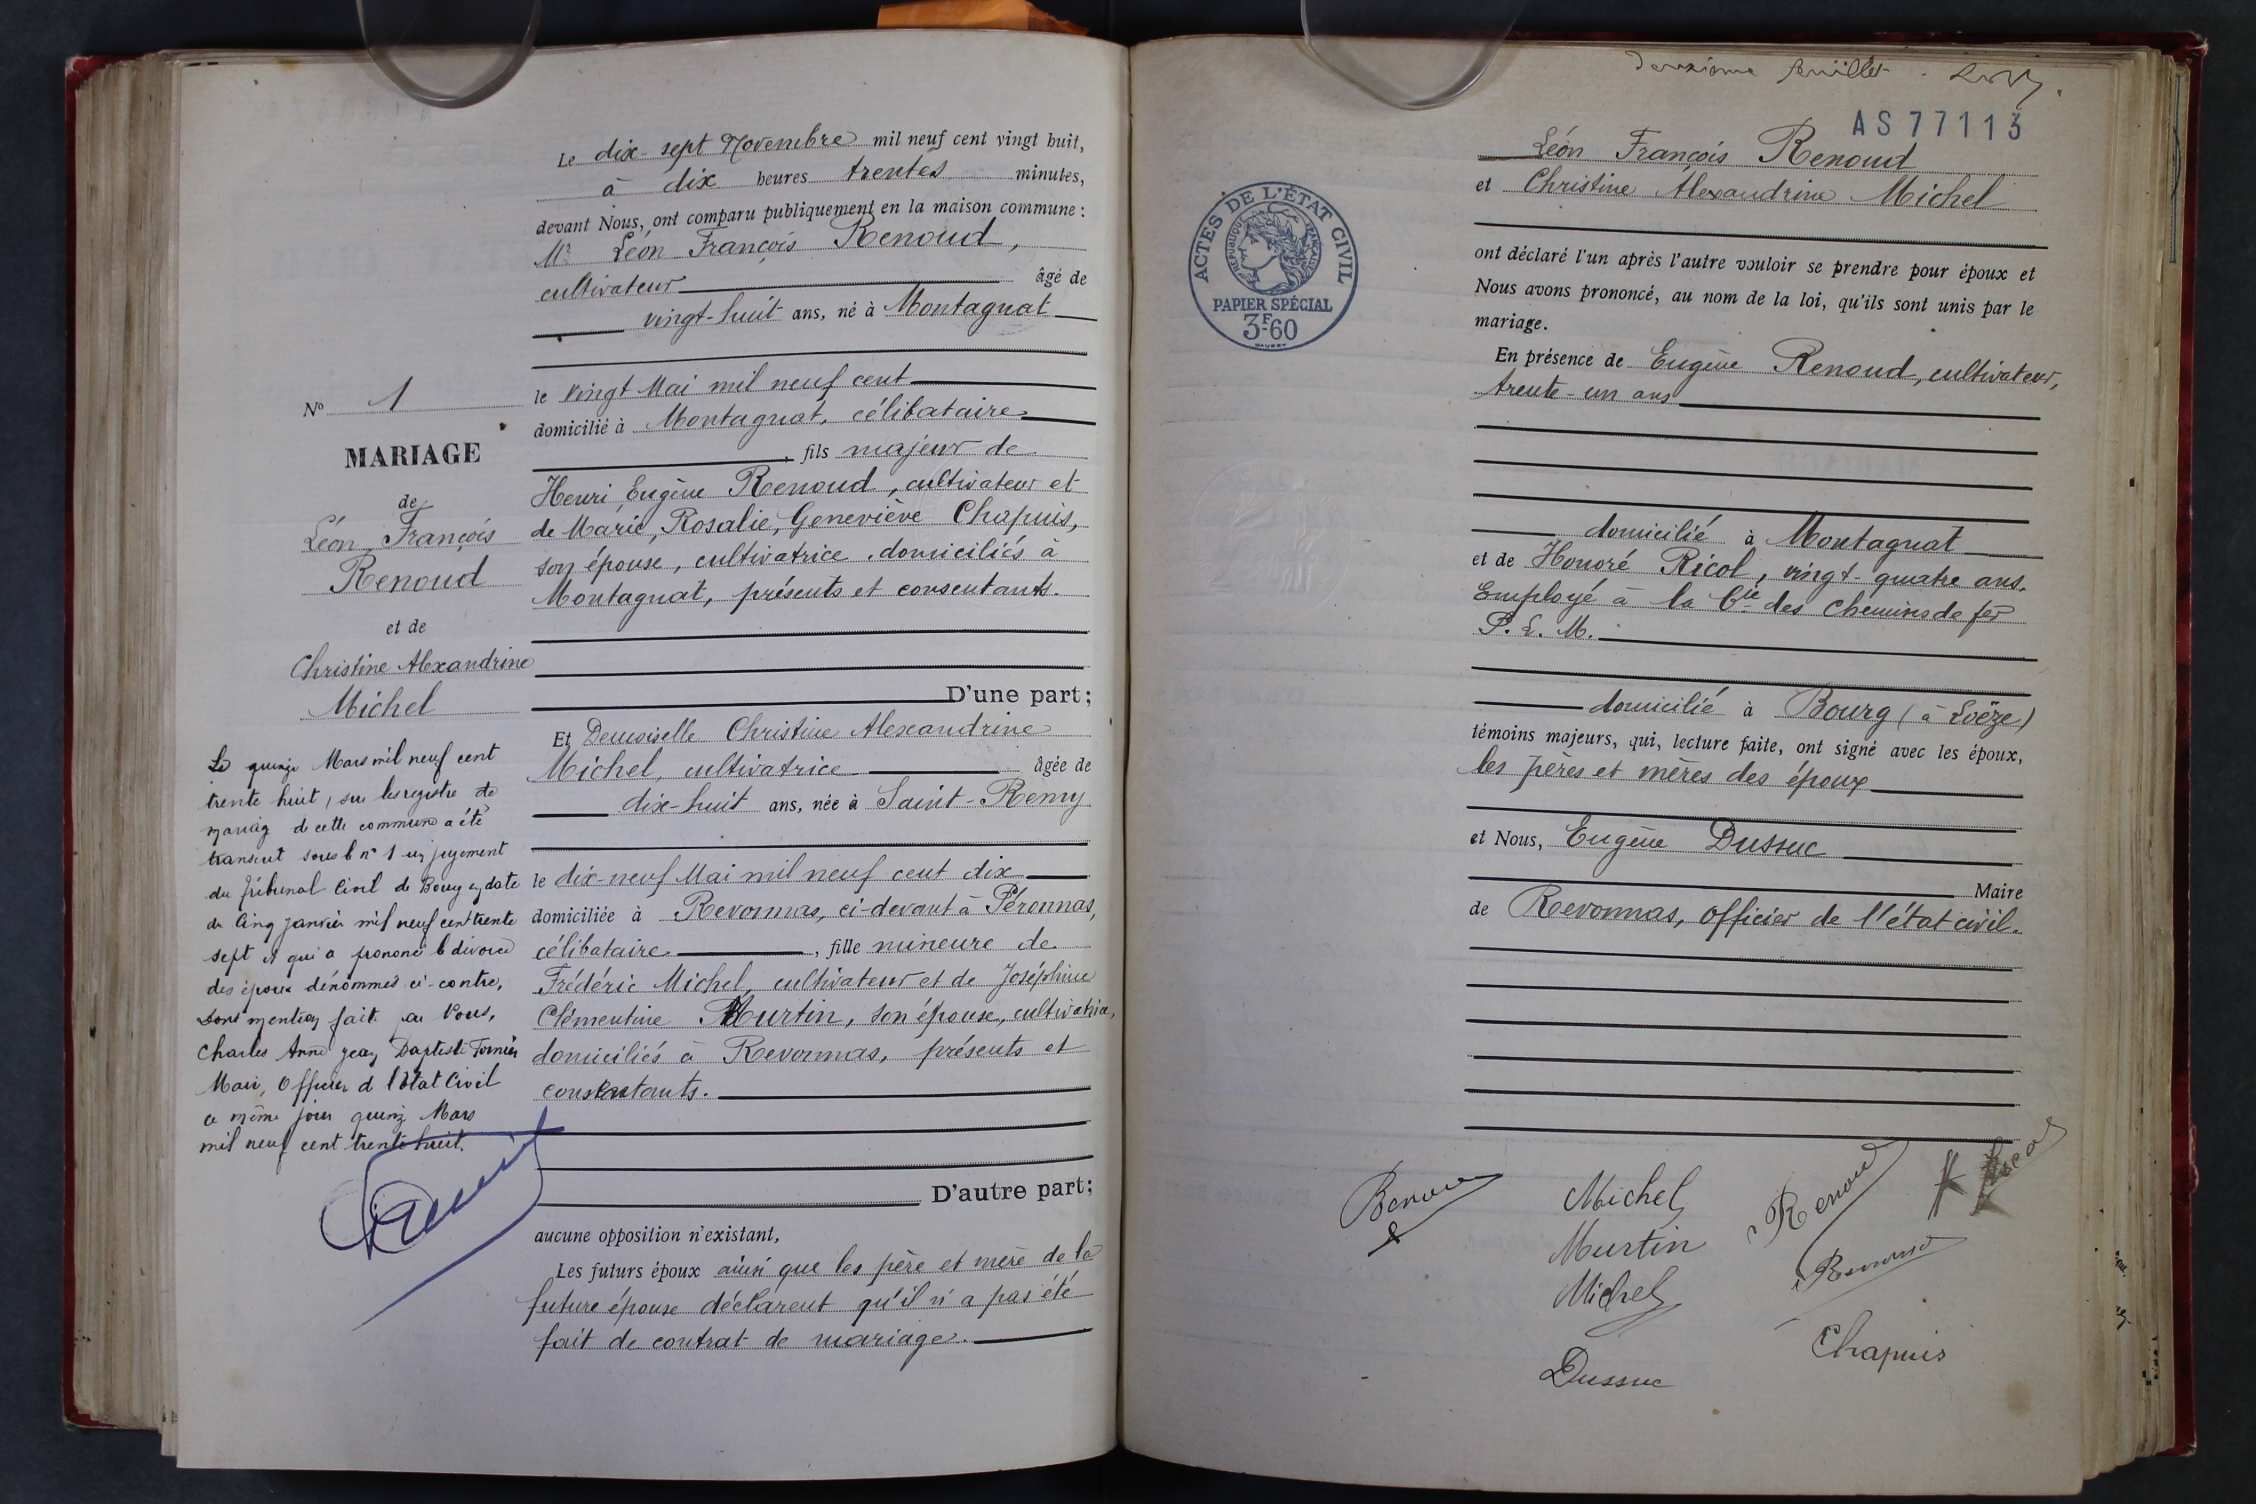 Le dix-sept Novembre mil neuf cent vingt huit,
à dix heures trentes minutes,
devant Nous, ont comparu publiquement en la maison commune :
Mr Léon François Renoud,
cultivateur âgé de
vingt-huit ans, né à Montagnat
le vingt Mai mil neuf cent
domicilié à Montagnat, célibataire
, fils majeur de
Henri Eugène Renoud, cultivateur et
de Marie, Rosalie, Geneviève Chapuis,
son épouse, cultivatrice, domiciliés à
Montagnat, présents et consentants.
D'une part ;
Et Demoiselle Christine Alexandrine
Michel, cultivatrice âgée de
dix-huit ans, née à Saint-Remy
le dix-neuf Mai mil neuf cent dix
domiciliée à Revonnas, ci-devant à Péronnas,
célibataire, fille mineure de
Frédéric Michel, cultivateur et de Joséphine
Clémentine Murtin, son épouse, cultivatrice,
domiciliés à Revonnas, présents et
consentants.
D'autre part ;
aucune opposition n'existant,
Les futurs époux ainsi que les père et mère de la
future épouse déclarent qu'il n'a pas été
fait de contrat de mariage.
No 1
MARIAGE
de
Léon, François
Renoud
et de
Christine Alexandrine
Michel
Le quinze Mars mil neuf cent
trente huit, sur les registre de
mariag de cette commune a été
transcrit sous le n° 1 un jugement
du Tribunal Civil de Bourg en date
du Cinq janvier mil neuf cent trente
sept et qui a prononcé le divorce
des époux dénommés ci-contre,
Dont mention fait par Nous,
Charles Anne Jean Baptiste Fornier
Maire, Officier d l'Etat Civil
ce même jour quinze Mars
mil neuf cent trente huit.
Deuxième feuillet
AS77113
Léon François Renoud
et Christine Alexandrine Michel
ont déclaré l'un après l'autre vouloir se prendre pour époux et
Nous avons prononcé, au nom de la loi, qu'ils sont unis par le
mariage.
En présence de Eugène Renoud, cultivateur,
trente-un ans
domicilié à Montagnat
et de Honoré Ricol, vingt-quatre ans,
Employé à la Cie des Chemins de fer
P. L. M.
domicilié à Bourg (à Loëze)
témoins majeurs, qui, lecture faite, ont signé avec les époux,
les pères et mères des époux
et Nous, Eugène Dussuc
Maire
de Revonnas, officier de l'état civil.
ACTES DE L'ÉTAT CIVIL
RÉPUBLIQUE FRANÇAISE
PAPIER SPÉCIAL
3F-60
Michel
Murtin
Michel
Dussuc
Renoud
Renoud
Chapuis